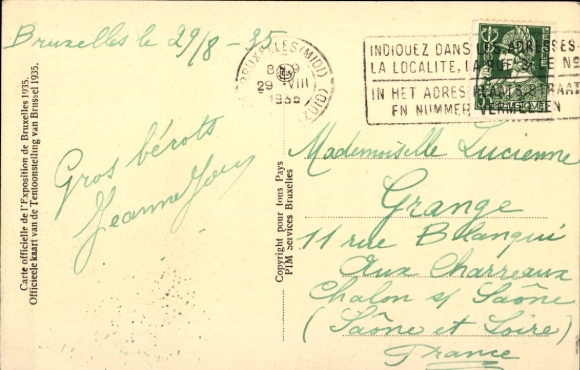 Bruxelles le 29/8 - 35
BRUXELLES (MIDI)
29 VIII
1935
(ZUID)
INDIQUEZ DANS LES ADRESSES
LA LOCALITE, LA RUE ET LE Nº
IN HET ADRES PLAATS STRAAT
EN NUMMER VERMELDEN
Carte officielle de l'Exposition de Bruxelles 1935.
Officieele kaart van de Tentoonstelling van Brussel 1935.
Gros bérots
Jeanne
Copyright pour tous Pays
PIM Services Bruxelles
Mademoiselle Lucienne
Grange
11 rue Blanqui
Aux Charreaux
Chalon s/ Saône
(Saône et Loire)
France